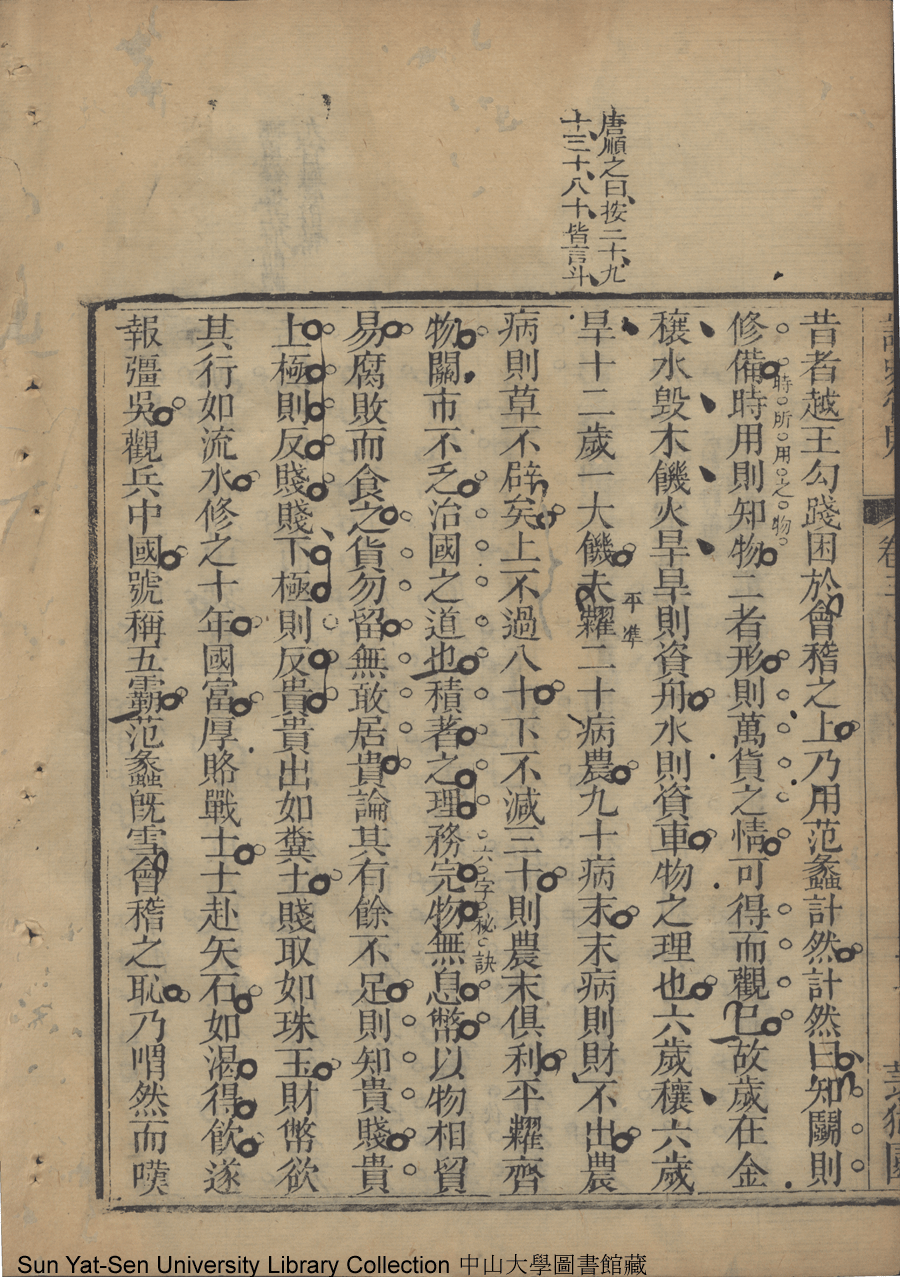 唐順之曰按二十九
十三十八十皆言斗
昔者越王勾踐困於會稽之上乃用范蠡計然計然曰知鬬則
修備時用則知物二者形則萬貨之情可得而觀已故歲在金
時所用之物
穰水毀木饑火旱旱則資舟水則資車物之理也六歲穰六歲
旱十二歲一大饑夫糶二十病農九十病末末病則財不出農
平準
病則草不辟矣上不過八十下不減三十則農末俱利平糶齊
物關市不乏治國之道也積著之理務完物無息幣以物相貿
六字秘訣
易腐敗而食之貨勿留無敢居貴論其有餘不足則知貴賤貴
上極則反賤賤下極則反貴貴出如糞土賤取如珠玉財幣欲
其行如流水修之十年國富厚賂戰士士赴矢石如渴得飲遂
報彊吳觀兵中國號稱五霸范蠡既雪會稽之恥乃喟然而嘆
Sun Yat-Sen University Library Collection 中山大學圖書館藏